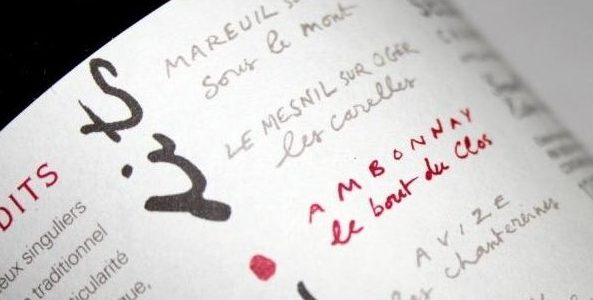 MAREUIL
Sous le mont
LE MESNIL SUR OGER
les carelles
AMBONNAY
le bout du Clos
AVIZE
chantereines
DITS
eux singuliers
traditionnel